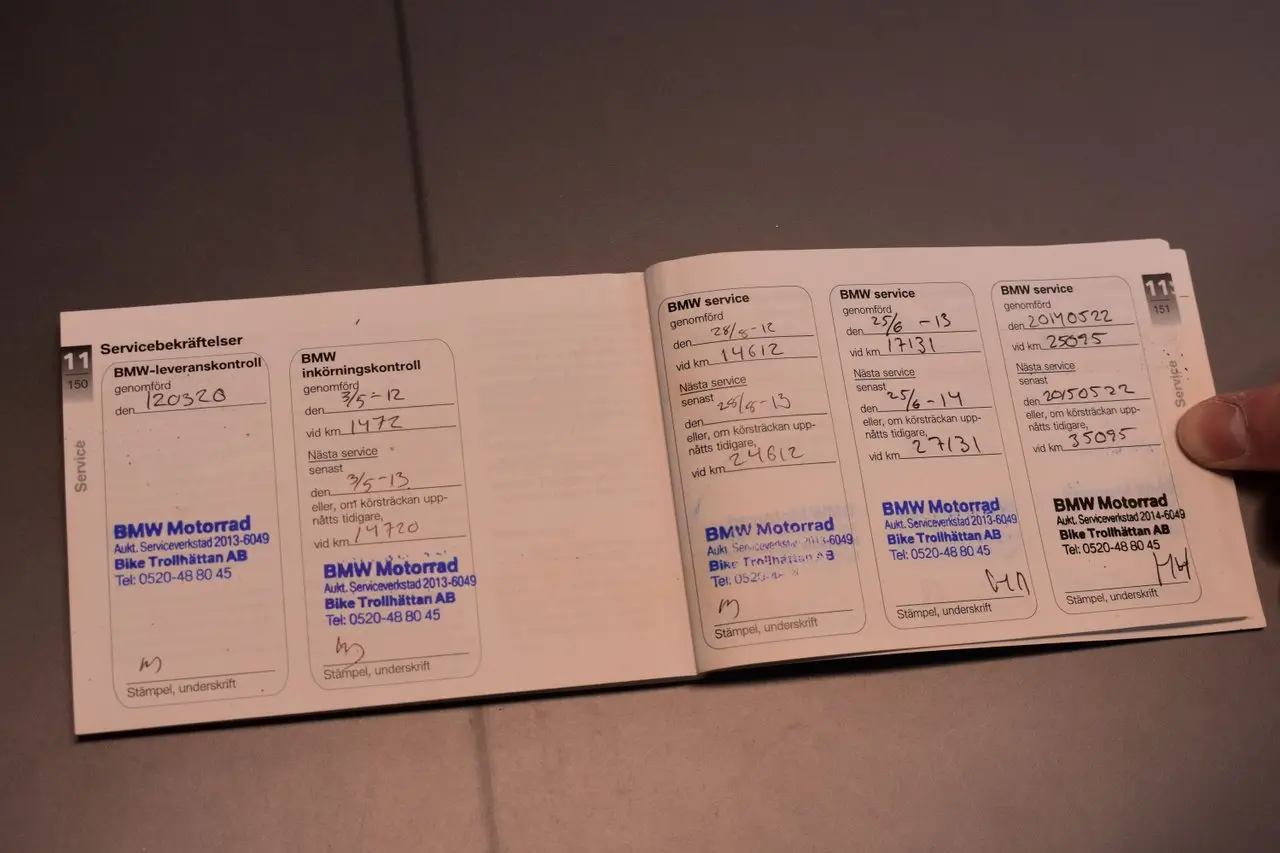 11
150
Service
Servicebekräftelser
BMW-leveranskontroll
genomförd
den 120320
BMW Motorrad
Aukt. Serviceverkstad 2013-6049
Bike Trollhättan AB
Tel: 0520-48 80 45
Stämpel, underskrift
BMW
inkörningskontroll
genomförd
den 3/5-12
vid km 1472
Nästa service
senast
den 3/5-13
eller, om körsträckan upp-
nåtts tidigare,
vid km 14720
BMW Motorrad
Aukt. Serviceverkstad 2013-6049
Bike Trollhättan AB
Tel: 0520-48 80 45
Stämpel, underskrift
BMW service
genomförd
den 28/8-12
vid km 14612
Nästa service
senast
den 28/8-13
eller, om körsträckan upp-
nåtts tidigare,
vid km 24612
BMW Motorrad
Aukt. Serviceverkstad 2013-6049
Bike Trollhättan AB
Tel:
Stämpel, underskrift
BMW service
genomförd
den 25/6-13
vid km 17131
Nästa service
senast
den 25/6-14
eller, om körsträckan upp-
nåtts tidigare,
vid km 27131
BMW Motorrad
Aukt. Serviceverkstad 2013-6049
Bike Trollhättan AB
Tel: 0520-48 80 45
Stämpel, underskrift
BMW service
genomförd
den 20140522
vid km 25095
Nästa service
senast
den 20150522
eller, om körsträckan upp-
nåtts tidigare,
vid km 35095
BMW Motorrad
Aukt. Serviceverkstad 2014-6049
Bike Trollhättan AB
Tel: 0520-48 80 45
Stämpel, underskrift
11
151
Service